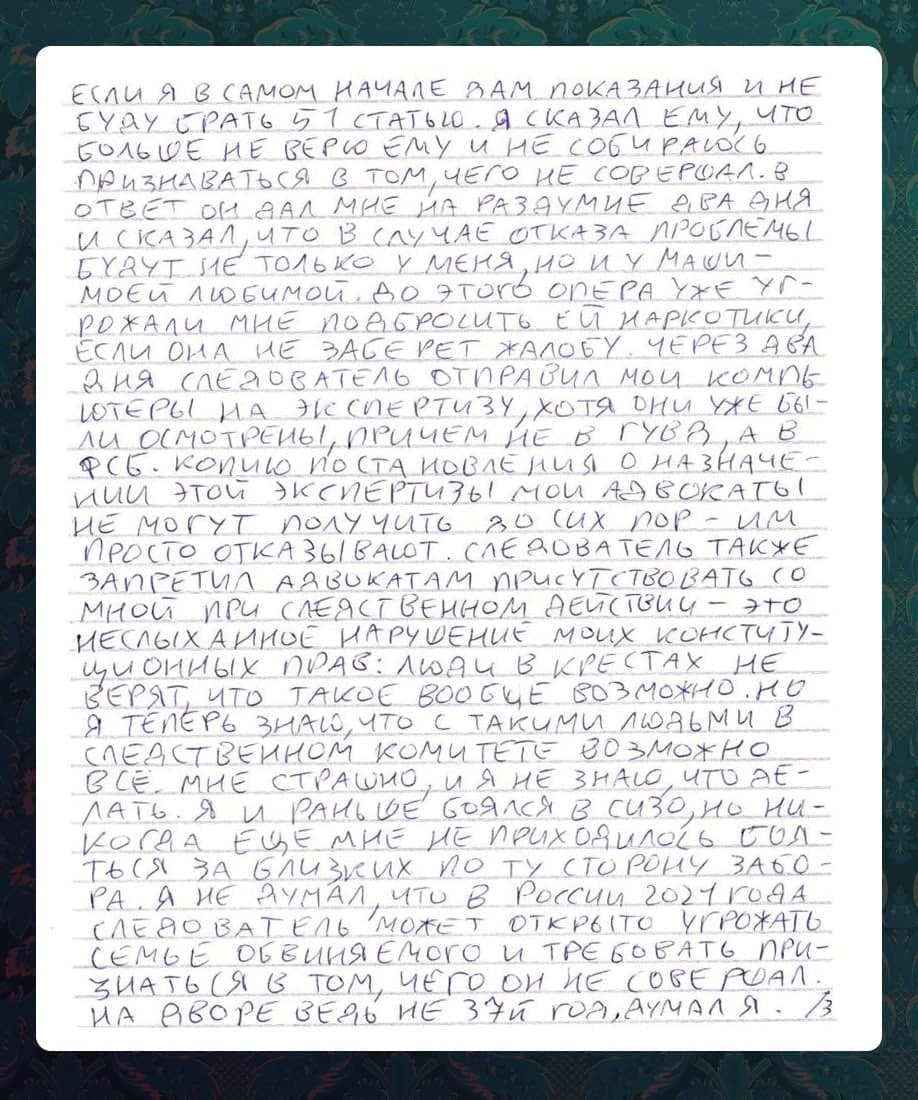 ЕСЛИ Я В САМОМ НАЧАЛЕ ДАМ ПОКАЗАНИЯ И НЕ
БУДУ БРАТЬ 51 СТАТЬЮ. Я СКАЗАЛ ЕМУ, ЧТО
БОЛЬШЕ НЕ ВЕРЮ ЕМУ И НЕ СОБИРАЮСЬ
ПРИЗНАВАТЬСЯ В ТОМ, ЧЕГО НЕ СОВЕРШАЛ. В
ОТВЕТ ОН ДАЛ МНЕ НА РАЗДУМИЕ ДВА ДНЯ
И СКАЗАЛ, ЧТО В СЛУЧАЕ ОТКАЗА ПРОБЛЕМЫ
БУДУТ НЕ ТОЛЬКО У МЕНЯ, НО И У МАШИ –
МОЕЙ ЛЮБИМОЙ. ДО ЭТОГО ОПЕРА УЖЕ УГ-
РОЖАЛИ МНЕ ПОДБРОСИТЬ ЕЙ НАРКОТИКИ,
ЕСЛИ ОНА НЕ ЗАБЕРЕТ ЖАЛОБУ. ЧЕРЕЗ ДВА
ДНЯ СЛЕДОВАТЕЛЬ ОТПРАВИЛ МОИ КОМПЬ
ЮТЕРЫ НА ЭКСПЕРТИЗУ, ХОТЯ ОНИ УЖЕ БЫ-
ЛИ ОСМОТРЕНЫ, ПРИЧЕМ НЕ В ГУВД, А В
ФСБ. КОПИЮ ПОСТАНОВЛЕНИЯ О НАЗНАЧЕ-
НИИ ЭТОЙ ЭКСПЕРТИЗЫ МОИ АДВОКАТЫ
НЕ МОГУТ ПОЛУЧИТЬ ДО СИХ ПОР – ИМ
ПРОСТО ОТКАЗЫВАЮТ. СЛЕДОВАТЕЛЬ ТАКЖЕ
ЗАПРЕТИЛ АДВОКАТАМ ПРИСУТСТВОВАТЬ СО
МНОЙ ПРИ СЛЕДСТВЕННОМ ДЕЙСТВИИ – ЭТО
НЕСЛЫХАННОЕ НАРУШЕНИЕ МОИХ КОНСТИТУ-
ЦИОННЫХ ПРАВ: ЛЮДИ В КРЕСТАХ НЕ
ВЕРЯТ, ЧТО ТАКОЕ ВООБЩЕ ВОЗМОЖНО. НО
Я ТЕПЕРЬ ЗНАЮ, ЧТО С ТАКИМИ ЛЮДЬМИ В
СЛЕДСТВЕННОМ КОМИТЕТЕ ВОЗМОЖНО
ВСЁ. МНЕ СТРАШНО, И Я НЕ ЗНАЮ, ЧТО ДЕ-
ЛАТЬ. Я И РАНЬШЕ БОЯЛСЯ В СИЗО, НО НИ-
КОГДА ЕЩЕ МНЕ НЕ ПРИХОДИЛОСЬ БОЯ-
ТЬСЯ ЗА БЛИЗКИХ ПО ТУ СТОРОНУ ЗАБО-
РА. Я НЕ ДУМАЛ, ЧТО В РОССИИ 2021 ГОДА
СЛЕДОВАТЕЛЬ МОЖЕТ ОТКРЫТО УГРОЖАТЬ
СЕМЬЕ ОБВИНЯЕМОГО И ТРЕБОВАТЬ ПРИ-
ЗНАТЬСЯ В ТОМ, ЧЕГО ОН НЕ СОВЕРШАЛ.
НА ДВОРЕ ВЕДЬ НЕ 37Й ГОД, ДУМАЛ Я. /3